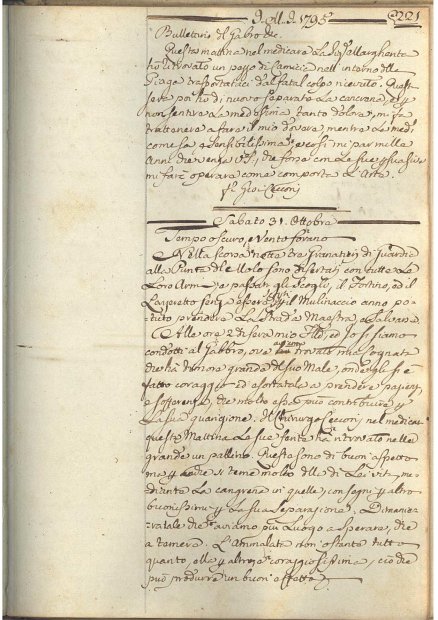 D. M. D. 1795 221
Bullettino di Gabbro die.
Questa mattina nel medicare la Sig.a Margherita
ho ritrovato un pezzo di Camicia nell'interno delle
Piaghe trasportataci dal fatal colpo ricevuto. Ques
sera poi ho di nuovo separato la cancrena, e
non sentire la medesima tanto dolore, mi fa
trattenere a fare il mio dovere mentre la medi
come sa sensibilissima, e così mi par mille
Anni che venga V.S., che forse con le sue
mi farà operare come comporta l'Arte.
Gio: Cecconj
Sabato 31. Ottobre
Tempo oscuro, e Vento forano
Nella scorsa notte tre Granatieri di Guardia
alla Punta del Molo sono disertati con tutte le
Loro Armi e passati gli Scogli, il Fortino, ed il
Lazzeretto senz'essere il Mulinaccio anno po
tuto prendere la Strada Maestra e salvarsi
Alle ore 2 di sera mio e Jos. siamo
condotti al Gabbro, ove trovata mia Cognata
che ha timore grande del suo Male, onde gli si è
fatto coraggio ed esortatala a prendere pazienz
e sofferenza, che molto essa può contribuire
la sua guarigione. Il Chirurgo Cecconj nel medicare
questa Mattina le sue ferite ha ritrovato nella
grande un pallino. Queste sono di buon aspetto
ma che si teme molto della di Lei vita, me
diante la cangrena in quelle, con segni altro
buonissimi la sua separazione. Dimanier
tale che aviamo più luogo a sperare, che
a temere. L'Ammalata non ostante tutto
quanto, ella altro è coraggiosissima, ciò che
può produrre un buon effetto